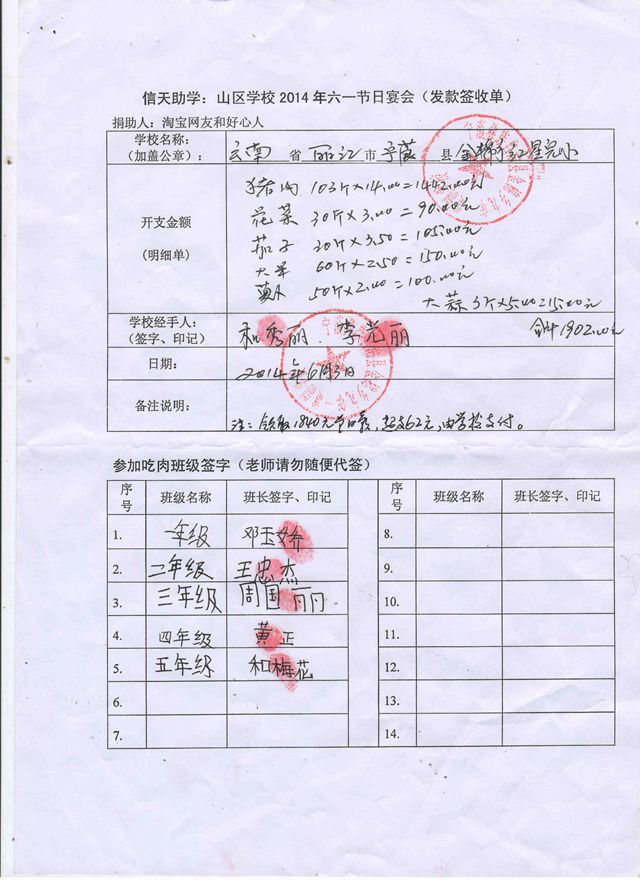 信天助学：山区学校 2014 年六一节日宴会（发款签收单）
捐助人：淘宝网友和好心人
学校名称：
（加盖公章）：
云南 省 丽江 市 宁蒗 县 金棉乡红星完小
开支金额
(明细单)
猪肉 103斤×14.00=1442.00元
花菜 30斤×3.00=90.00元
茄子 30斤×3.50=105.00元
60斤×2.50=150.00元
50斤×2.00=100.00元
大蒜 3斤×5.00=15.00元
合计1902.00元
学校经手人：
（签字、印记）
和秀丽、李光丽
日期：
2014年6月3日
备注说明：
注：领取1840元节日餐，超支62元，由学校支付。
参加吃肉班级签字（老师请勿随便代签）
序号 班级名称 班长签字、印记 序号 班级名称 班长签字、印记
1. 一年级 邓玉娇 8.
2. 二年级 王忠杰 9.
3. 三年级 周国丽 10.
4. 四年级 黄正 11.
5. 五年级 和梅花 12.
6. 13.
7. 14.